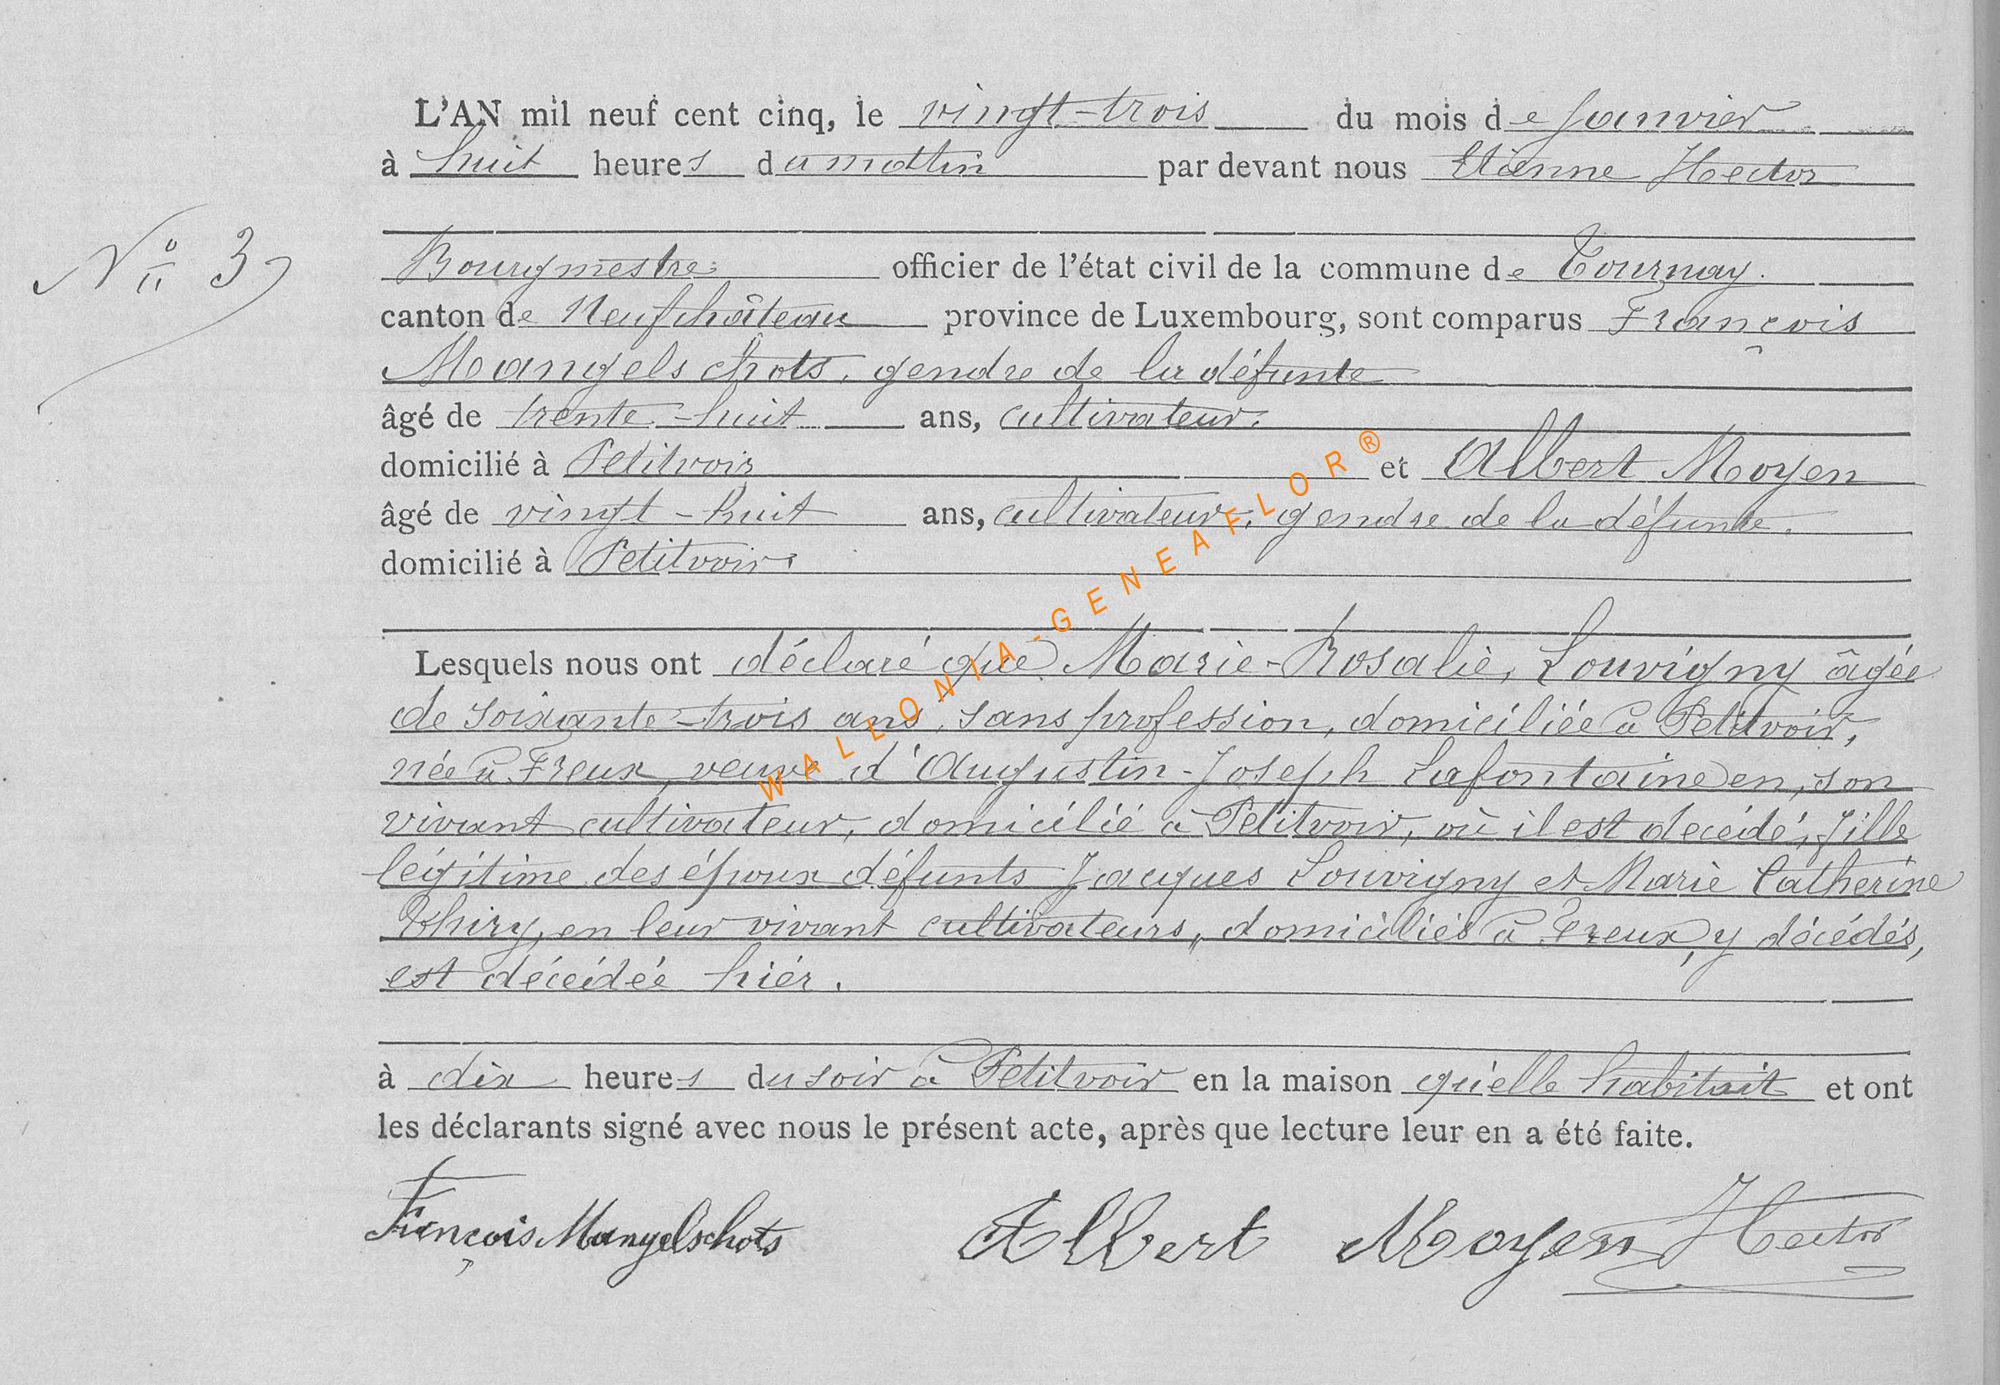 L'AN mil neuf cent cinq, le vingt-trois du mois de Janvier
à huit heures du matin par devant nous Etienne Hector
N° 3
Bourgmestre officier de l'état civil de la commune de Tournay.
canton de Neufchâteau province de Luxembourg, sont comparus François
Mangelschots, gendre de la défunte
âgé de trente-huit ans, cultivateur.
domicilié à Petitvoir et Albert Moyen
âgé de vingt-huit ans, cultivateur, gendre de la défunte.
domicilié à Petitvoir.
Lesquels nous ont déclaré que Marie-Rosalie, Louvigny âgée
de soixante-trois ans, sans profession, domiciliée à Petitvoir,
née à Freux, veuve d'Augustin-Joseph Lafontaine en, son
vivant cultivateur, domicilié à Petitvoir, où il est decédé, fille
légitime des époux défunts Jacques Louvigny et Marie Catherine
Thiry, en leur vivant cultivateurs, domiciliés à Freux, y décédés,
est décédée hier.
à dix heures du soir à Petitvoir en la maison qu'elle habitait et ont
les déclarants signé avec nous le présent acte, après que lecture leur en a été faite.
François Mangelschots Albert Moyen Hector
WALLONIA-GENEAFLOR®